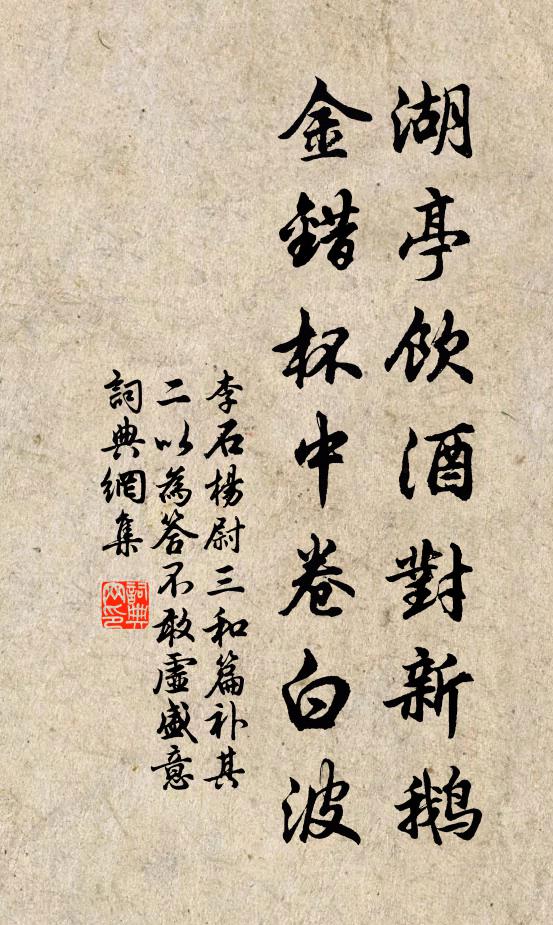 湖亭饮酒對新鵝
金錯杯中卷白波
李石楊尉三和篇补其
二以為答不敢虛盛意
詞典網集
詞典